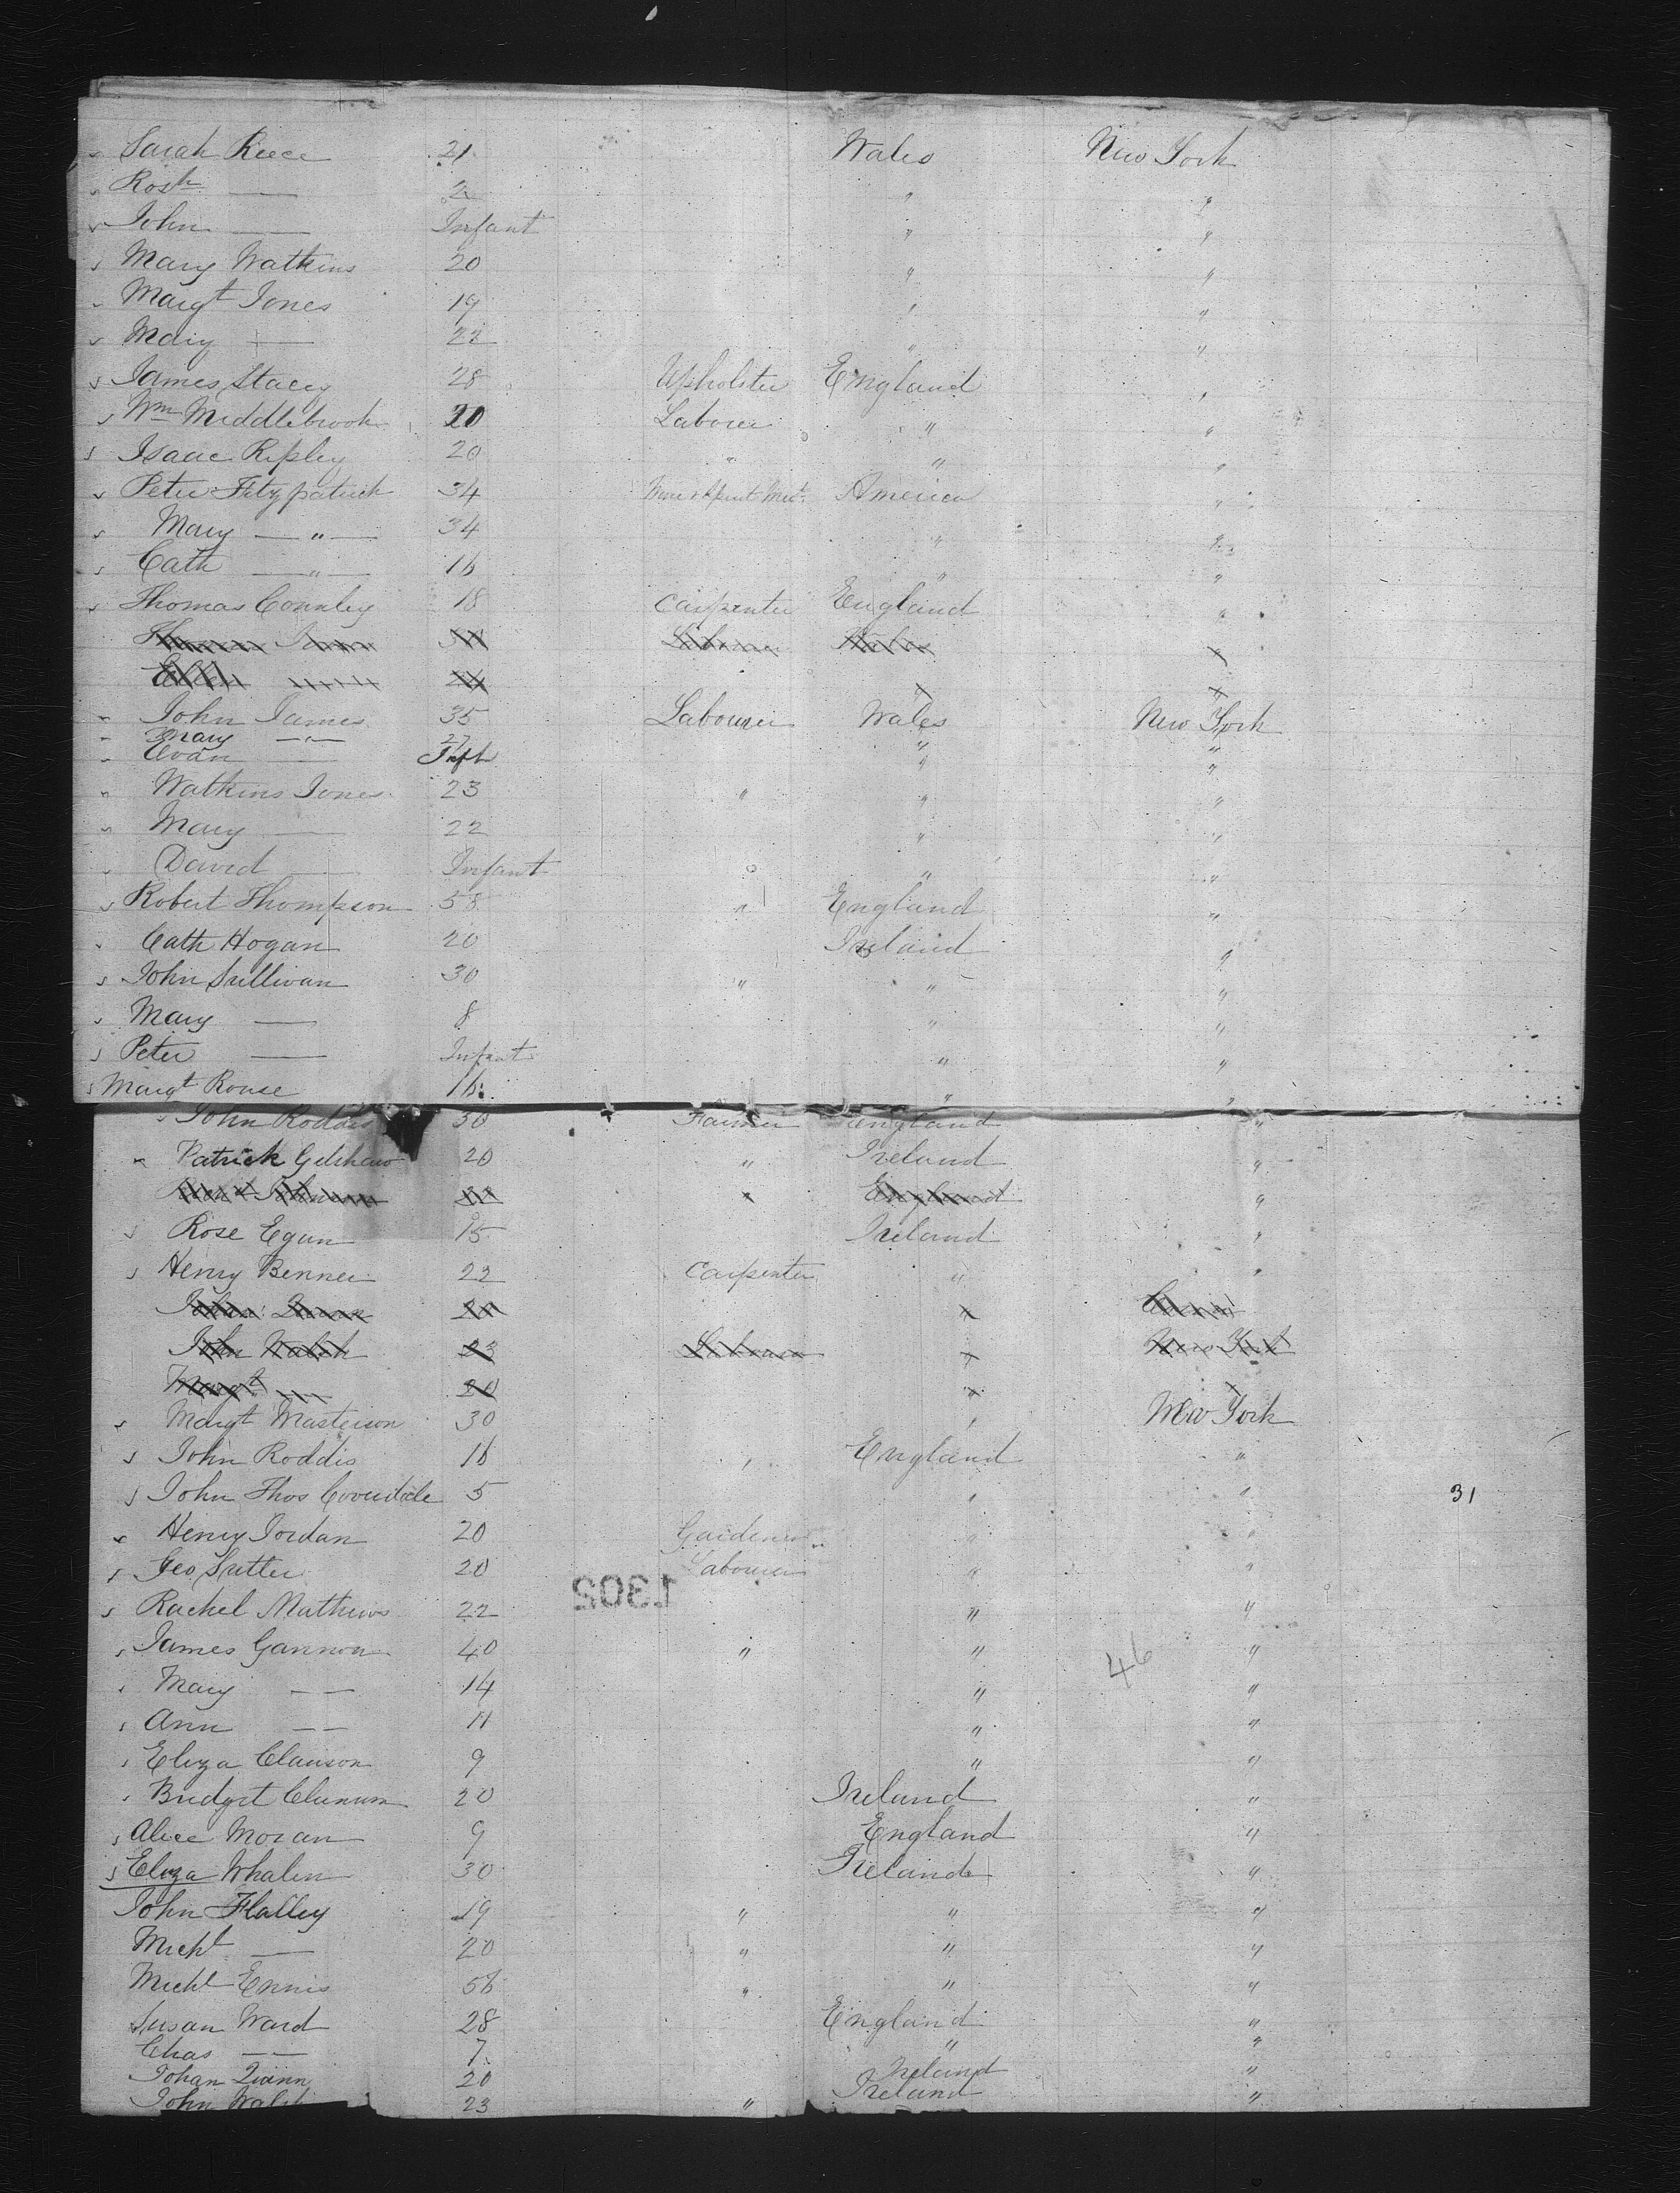 Sarah Reece 21 Wales New York
Rosh — 2 " "
John — Infant " "
Mary Watkins 20 " "
Margt Jones 19 " "
Mary — 22 " "
James Stacey 28 Upholster England "
Wm Middlebrook 20 Labourer " "
Isaac Ripley 20 " " "
Peter Fitzpatrick 34 America "
Mary — " — 34 " "
Cath — " — 16 " "
Thomas Connley 18 Carpenter England "
Labourer Wales "
Ellen " "
John James 35 Labourer Wales New York
Mary — " — 27 " "
Evan — Inft " "
Watkins Jones 23 " " "
Mary — 22 " "
David — Infant " "
Robert Thompson 58 " England "
Cath Hogan 20 Ireland "
John Sullivan 30 " " "
Mary — 8 " "
Peter — Infant " "
Margt Rouse 16 " "
John Roddis 30 Farmer England "
Patrick Gelshaw 20 " Ireland "
England "
Rose Egan 15 Ireland "
Henry Benner 22 Carpenter " "
John 20 "
John Walsh 23 Labourer " New York
Margt — 20 " "
Margt Masterson 30 " New York
John Roddis 16 " England "
John Thos Coverdale 5 " " 31
Henry Jordan 20 Gardener " "
Geo Sutter 20 Labourer " "
1302
Rachel Mathews 22 " "
James Gannon 40 " " "
46
Mary — — 14 " "
Ann — — 11 " "
Eliza Clauson 9 " "
Bridget 20 Ireland "
Alice Moran 9 England "
Eliza Whalen 30 Ireland "
John Flalley 19 " " "
Michl — 20 " " "
Michl Ennis 56 " " "
Susan Ward 28 England "
Chas — — 7 " "
Johan Quinn 20 Ireland "
John Walsh 23 " Ireland "